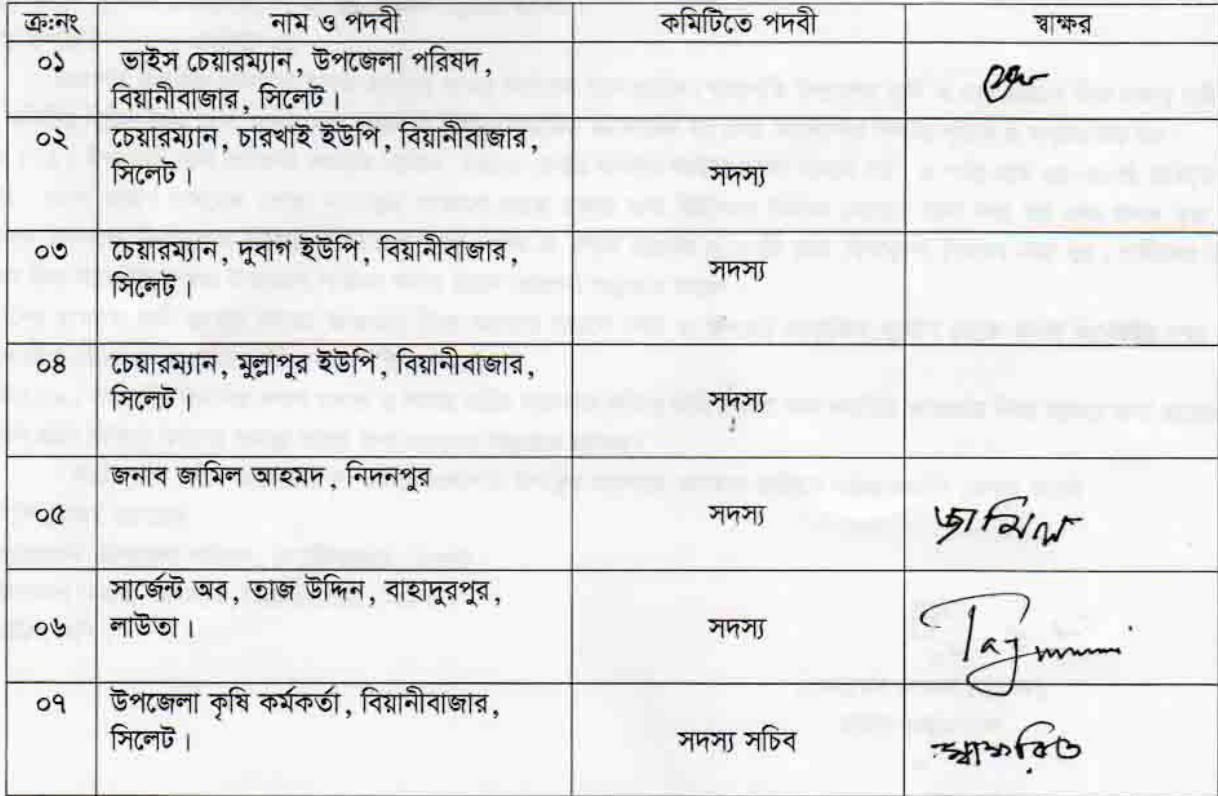 ক্র:নং নাম ও পদবী কমিটিতে পদবী স্বাক্ষর
০১ ভাইস চেয়ারম্যান, উপজেলা পরিষদ,
বিয়ানীবাজার, সিলেট।
০২ চেয়ারম্যান, চারখাই ইউপি, বিয়ানীবাজার,
সিলেট। সদস্য
০৩ চেয়ারম্যান, দুবাগ ইউপি, বিয়ানীবাজার,
সিলেট। সদস্য
০৪ চেয়ারম্যান, মুল্লাপুর ইউপি, বিয়ানীবাজার,
সিলেট। সদস্য
জনাব জামিল আহমদ, নিদনপুর
০৫ সদস্য জামিল
সার্জেন্ট অব, তাজ উদ্দিন, বাহাদুরপুর,
০৬ লাউতা। সদস্য
০৭ উপজেলা কৃষি কর্মকর্তা, বিয়ানীবাজার,
সিলেট। সদস্য সচিব স্বাক্ষরিত